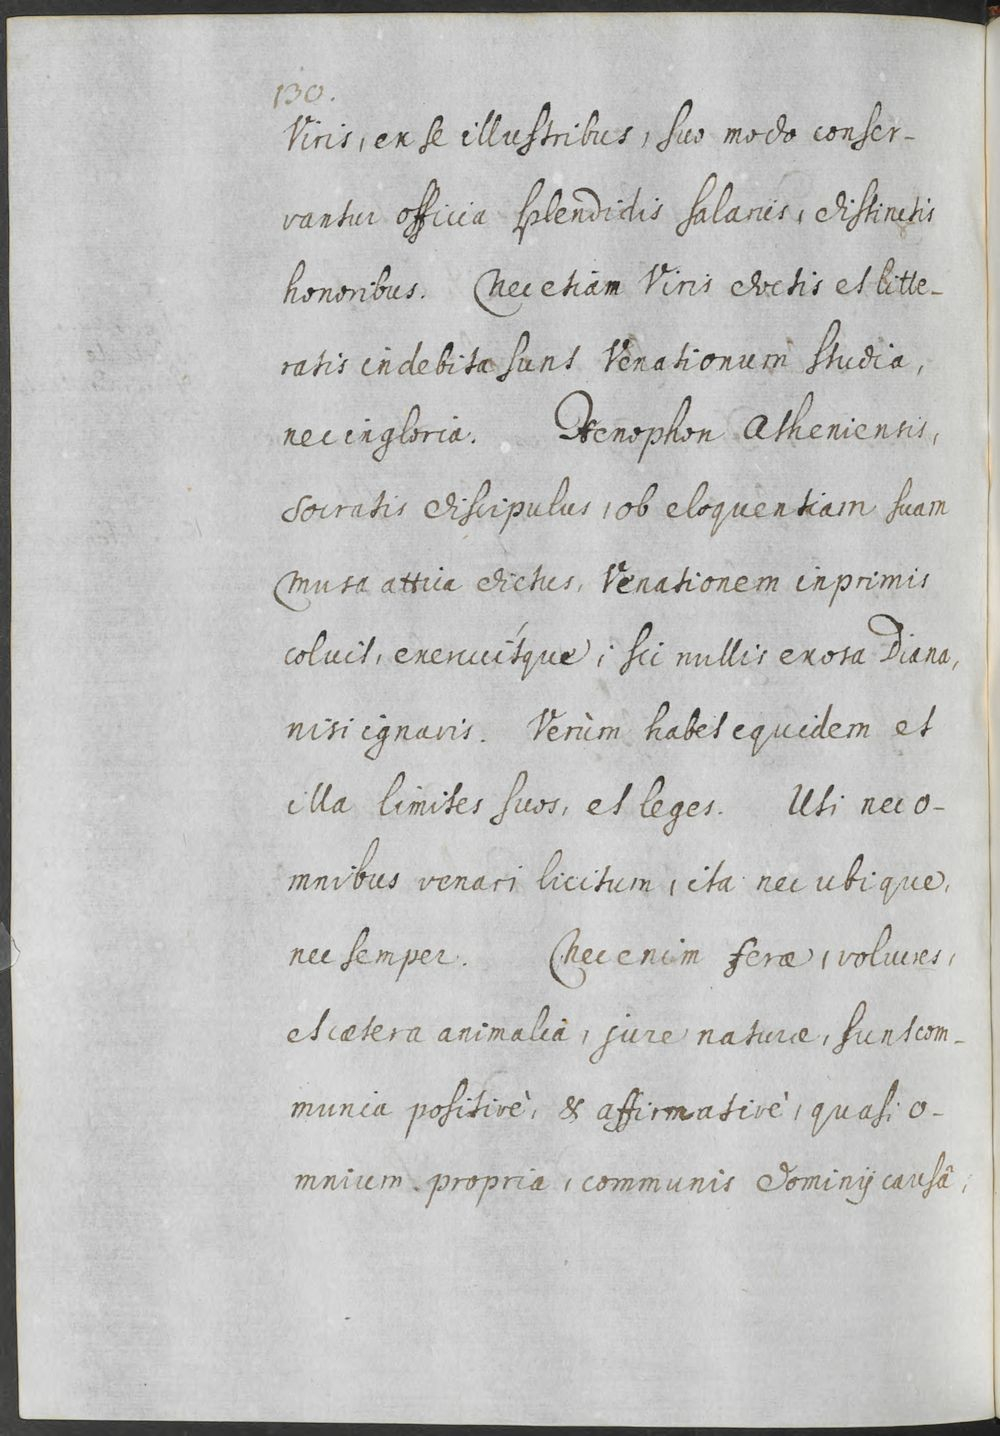 130.
Viris, ex se illustribus, suo modo conser-
vantur officia splendidis salariis, distinctis
honoribus. Nec etiàm Viris doctis et litte-
ratis indebita sunt Venationum studia,
nec ingloria. Xenophon Atheniensis,
Socratis discipulus, ob eloquentiam suam
Musa attica dictus, Venationem inprimis
coluit, exercuítque; sci nullis exosa Diana,
nisi ignavis. Verùm habet equidem et
illa limites suos, et leges. Uti nec o-
mnibus venari licitum, ita nec ubique,
nec semper. Nec enim feræ, volucres,
et cætera animalia, jure naturæ, sunt com-
munia positivè, & affirmativè, quasi o-
mnium propria, communis dominij causâ,